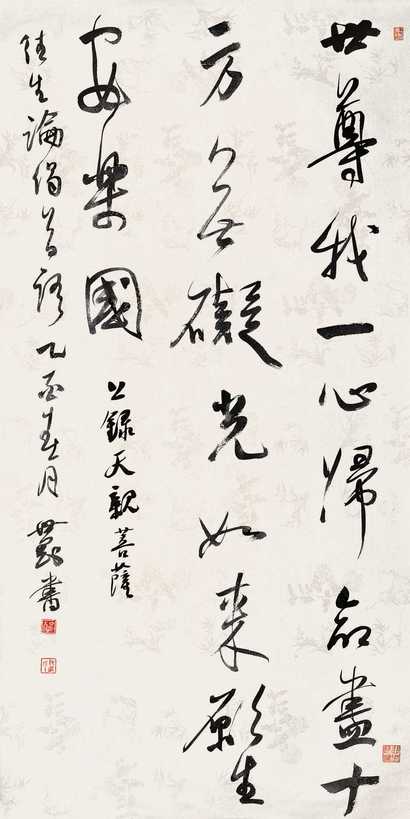 世尊我一心歸命盡十
方無礙光如來願生
安樂國 上錄天親菩薩
往生論偈首語乙酉春月 書